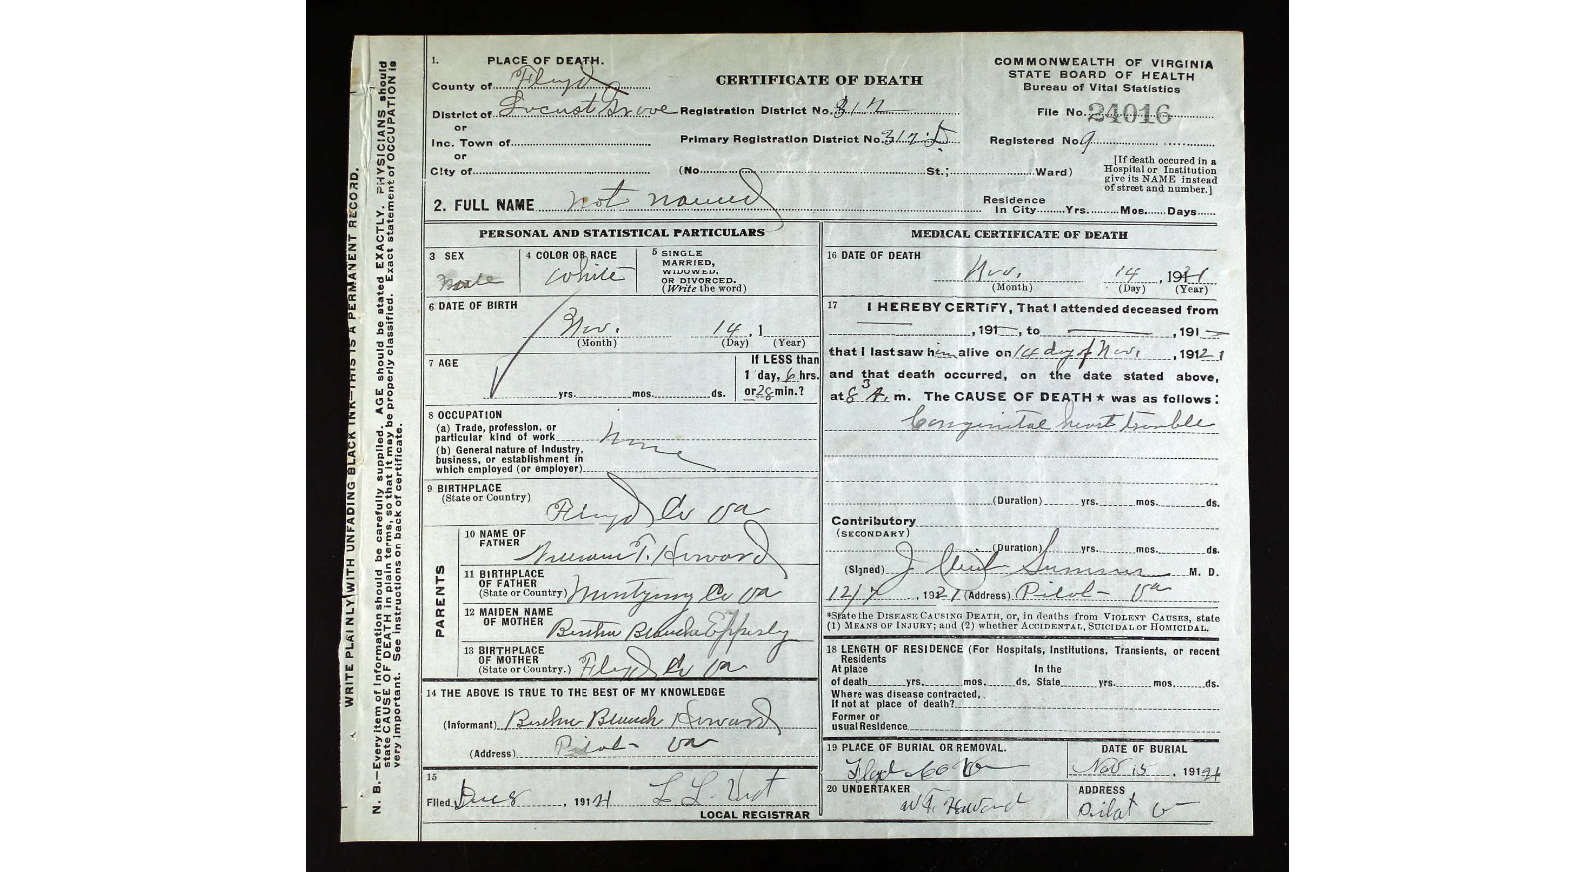 WRITE PLAINLY WITH UNFADING BLACK INK—THIS IS A PERMANENT RECORD.
N. B.—Every item of information should be carefully supplied. AGE should be stated EXACTLY. PHYSICIANS should
state CAUSE OF DEATH in plain terms, so that it may be properly classified. Exact statement of OCCUPATION is
very important. See instructions on back of certificate.
1. PLACE OF DEATH.
County of Floyd
District of Locust Grove
or
Inc. Town of
or
City of
CERTIFICATE OF DEATH
Registration District No. 317
Primary Registration District No. 317
(No. St.; Ward)
COMMONWEALTH OF VIRGINIA
STATE BOARD OF HEALTH
Bureau of Vital Statistics
File No. 24016
Registered No 9
[If death occured in a
Hospital or Institution
give its NAME instead
of street and number.]
2. FULL NAME not named
Residence
In City Yrs. Mos. Days
PERSONAL AND STATISTICAL PARTICULARS
3 SEX
Male
4 COLOR OR RACE
White
5 SINGLE
MARRIED,
WIDOWED,
OR DIVORCED.
(Write the word)
6 DATE OF BIRTH
Nov. 14, 1
(Month) (Day) (Year)
7 AGE
yrs. mos. ds.
If LESS than
1 day, 6 hrs.
or 28 min.?
8 OCCUPATION
(a) Trade, profession, or
particular kind of work none
(b) General nature of Industry,
business, or establishment in
which employed (or employer)
9 BIRTHPLACE
(State or Country)
Floyd Co Va
PARENTS
10 NAME OF
FATHER
William T. Howard
11 BIRTHPLACE
OF FATHER
(State or Country) Montgomy Co Va
12 MAIDEN NAME
OF MOTHER
Blanche Epperly
13 BIRTHPLACE
OF MOTHER
(State or Country.) Floyd Co Va
14 THE ABOVE IS TRUE TO THE BEST OF MY KNOWLEDGE
(Informant) Blanch Howard
(Address) Pilot Va
15
Filed Dec 8, 1921
LOCAL REGISTRAR
MEDICAL CERTIFICATE OF DEATH
16 DATE OF DEATH
Nov. 14, 1921
(Month) (Day) (Year)
17 I HEREBY CERTIFY, That I attended deceased from
, 191 , to , 191
that I last saw him alive on 14 day of Nov. , 1921
and that death occurred, on the date stated above,
at 8 30 A. m. The CAUSE OF DEATH ★ was as follows:
Congenital heart trouble
(Duration) yrs. mos. ds.
Contributory
(SECONDARY)
(Duration) yrs. mos. ds.
(Signed) J M. D.
12/7, 1921 (Address) Pilot Va
*State the DISEASE CAUSING DEATH, or, in deaths from VIOLENT CAUSES, state
(1) MEANS OF INJURY; and (2) whether ACCIDENTAL, SUICIDAL or HOMICIDAL.
18 LENGTH OF RESIDENCE (For Hospitals, Institutions, Transients, or recent
Residents
At place In the
of death yrs. mos. ds. State yrs. mos. ds.
Where was disease contracted,
If not at place of death?
Former or
usual Residence
19 PLACE OF BURIAL OR REMOVAL.
Floyd Co Va
DATE OF BURIAL
Nov 15, 1921
20 UNDERTAKER
W T. Howard
ADDRESS
Pilot V